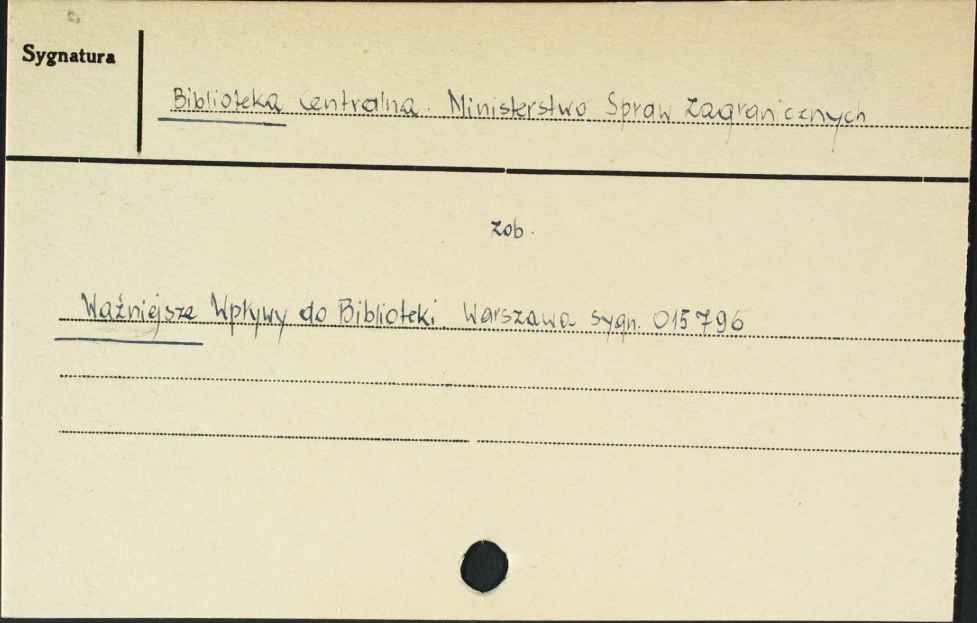 Sygnatura
Biblioteka Centralna. Ministerstwo Spraw Zagranicznych
zob.
Ważniejsze Wpływy do Biblioteki. Warszawa sygn. 015796